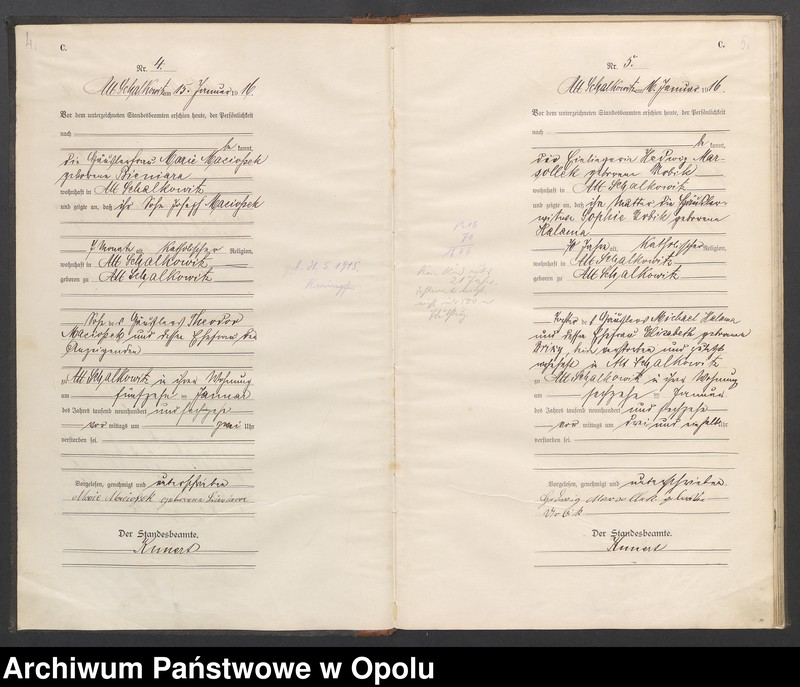 4.
C.
Nr. 4.
Alt Schalkowitz am 15. Januar 1916.
Vor dem unterzeichneten Standesbeamten erschien heute, der Persönlichkeit
nach
be kannt,
die Häuslerfrau Marie Maciossek
geborene
wohnhaft in Alt Schalkowitz
und zeigte an, daß ihr Sohn Josef Maciossek
7 Monate alt, Katholischer Religion,
wohnhaft in Alt Schalkowitz
geboren zu Alt Schalkowitz
Sohn des Häuslers Theodor
Maciossek und dessen Ehefrau der
Anzeigenden
zu Alt Schalkowitz in ihrer Wohnung
am fünfzehn ten Januar
des Jahres tausend neunhundert und sechzehn
vor mittags um zwei Uhr
verstorben sei.
Vorgelesen, genehmigt und unterschrieben
Marie geborene
Der Standesbeamte.
Kunert
5.
C.
Nr. 5.
Alt Schalkowitz am Januar 1916.
Vor dem unterzeichneten Standesbeamten erschien heute, der Persönlichkeit
nach
be kannt,
die Einliegerin Hedwig Mar-
sollek geborene
wohnhaft in Alt Schalkowitz
und zeigte an, daß ihre Mutter die Häusler-
witwe Sophie geborene
Halama
Jahre alt, Katholischer Religion,
wohnhaft in Alt Schalkowitz
geboren zu Alt Schalkowitz
Tochter des Häuslers Michael Halama
und dessen Ehefrau Elisabeth geborene
verstorben und zuletzt
wohnhaft in Alt Schalkowitz
zu Alt Schalkowitz in ihrer Wohnung
am sechzehn ten Januar
des Jahres tausend neunhundert und sechzehn
vor mittags um drei und einhalb Uhr
verstorben sei.
Vorgelesen, genehmigt und unterschrieben
Hedwig Marsollek geborene
Der Standesbeamte.
Kunert
Archiwum Państwowe w Opolu